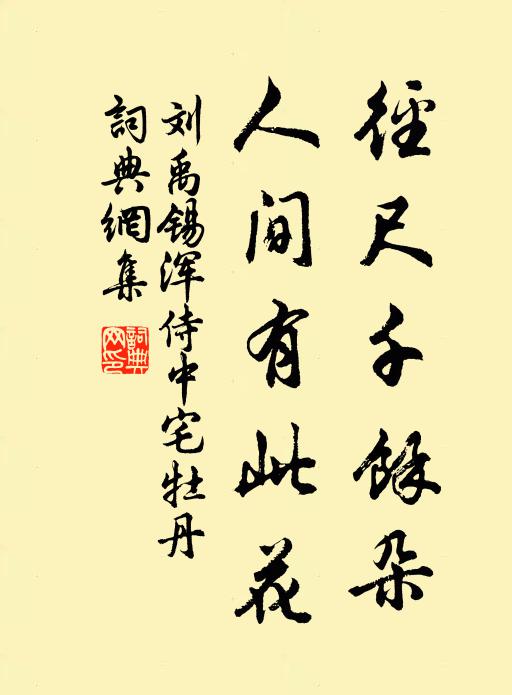 徑尺千餘朵
人間有此花
刘禹錫浑侍中宅牡丹
詞典網集
詞典
网印